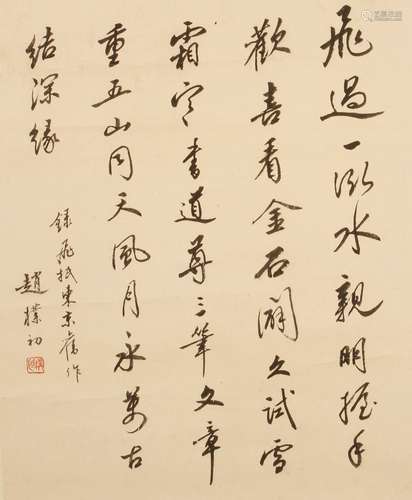 飛過一泓水親朋握手
歡喜看金石久試雪
霜寒書道尊三筆文章
重五山同天風月永萬古
結深緣
錄飛抵東京舊作
趙樸初